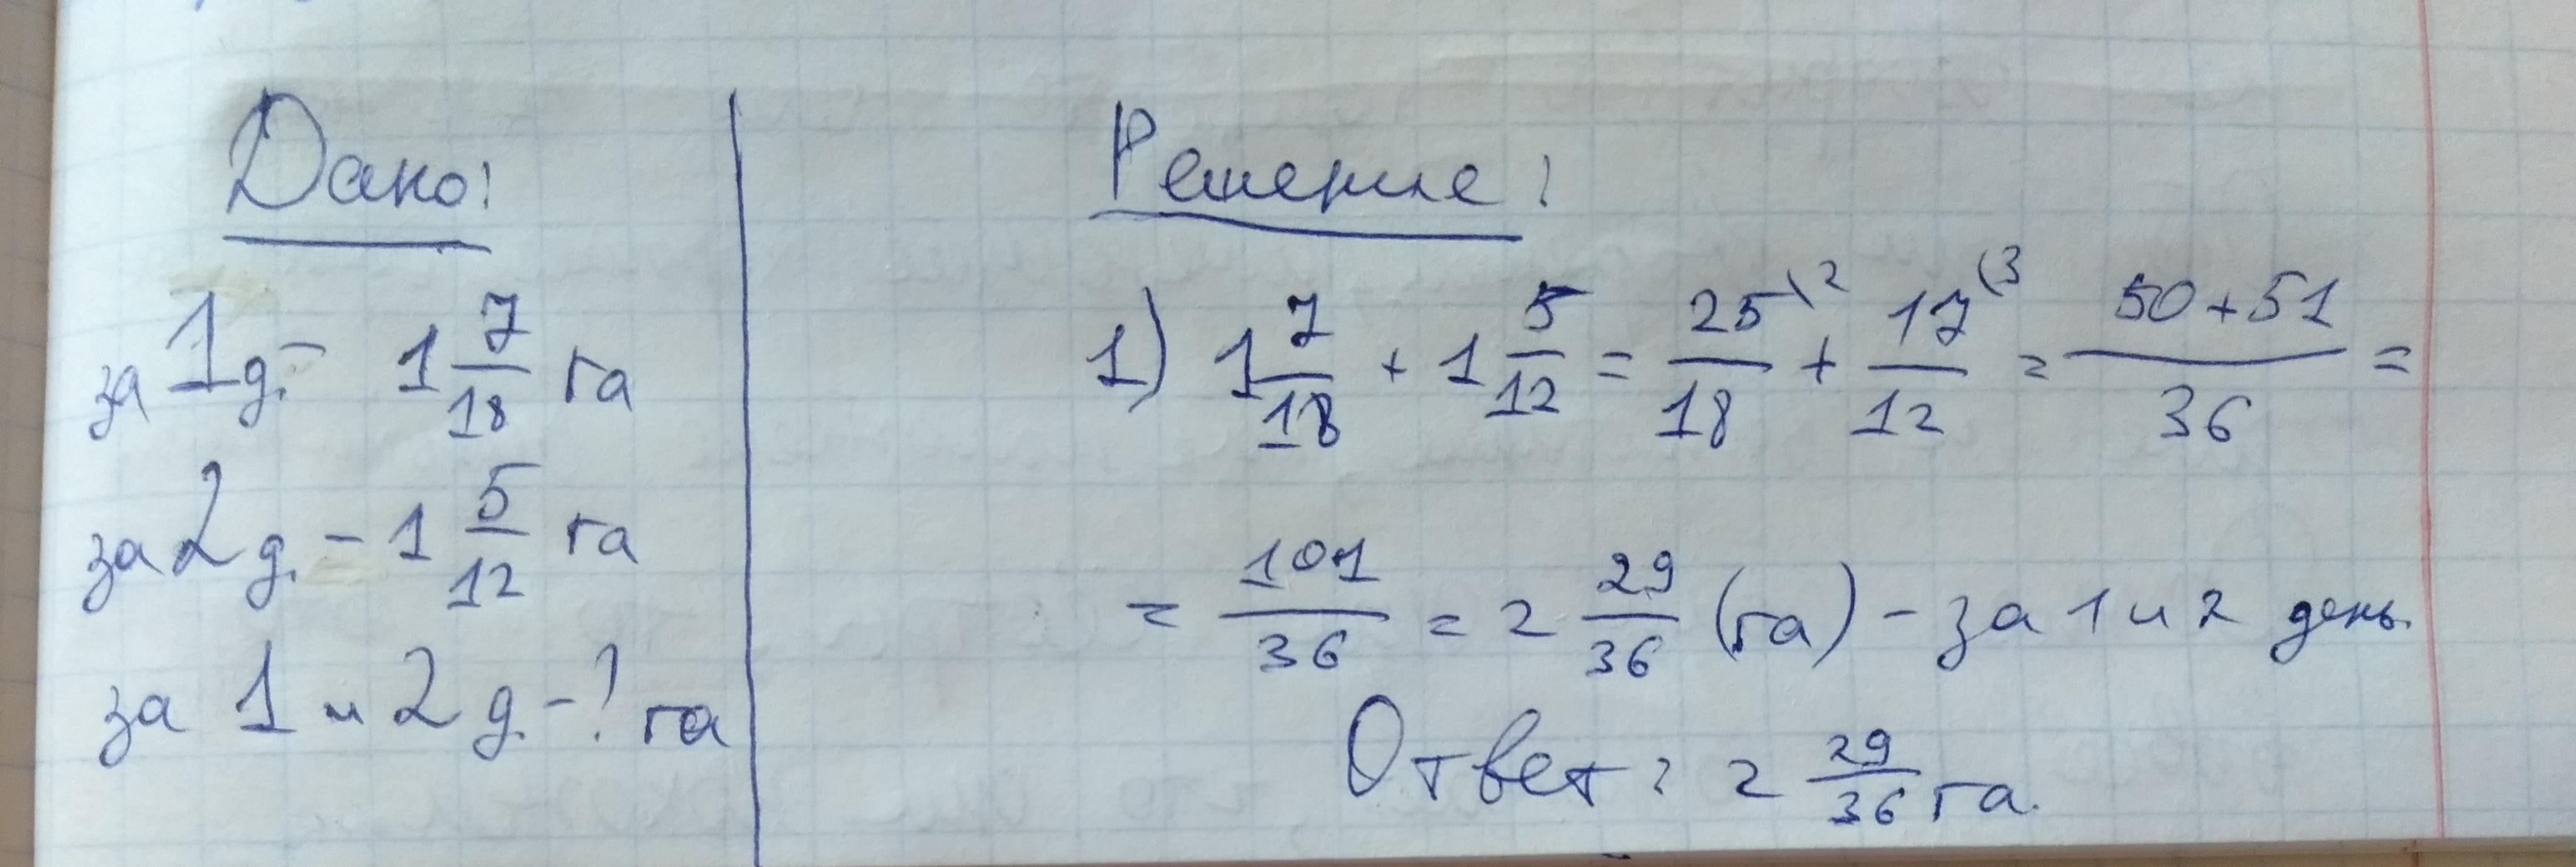 Дано:
за 1 д. - 1 7/18 га
за 2 д. - 1 5/12 га
за 1 и 2 д. - ? га
Решение:
1) 1 7/18 + 1 5/12 = 25\2/18 + 17\3/12 = 50+51/36 =
= 101/36 = 2 29/36 (га) - за 1 и 2 день.
Ответ: 2 29/36 га.